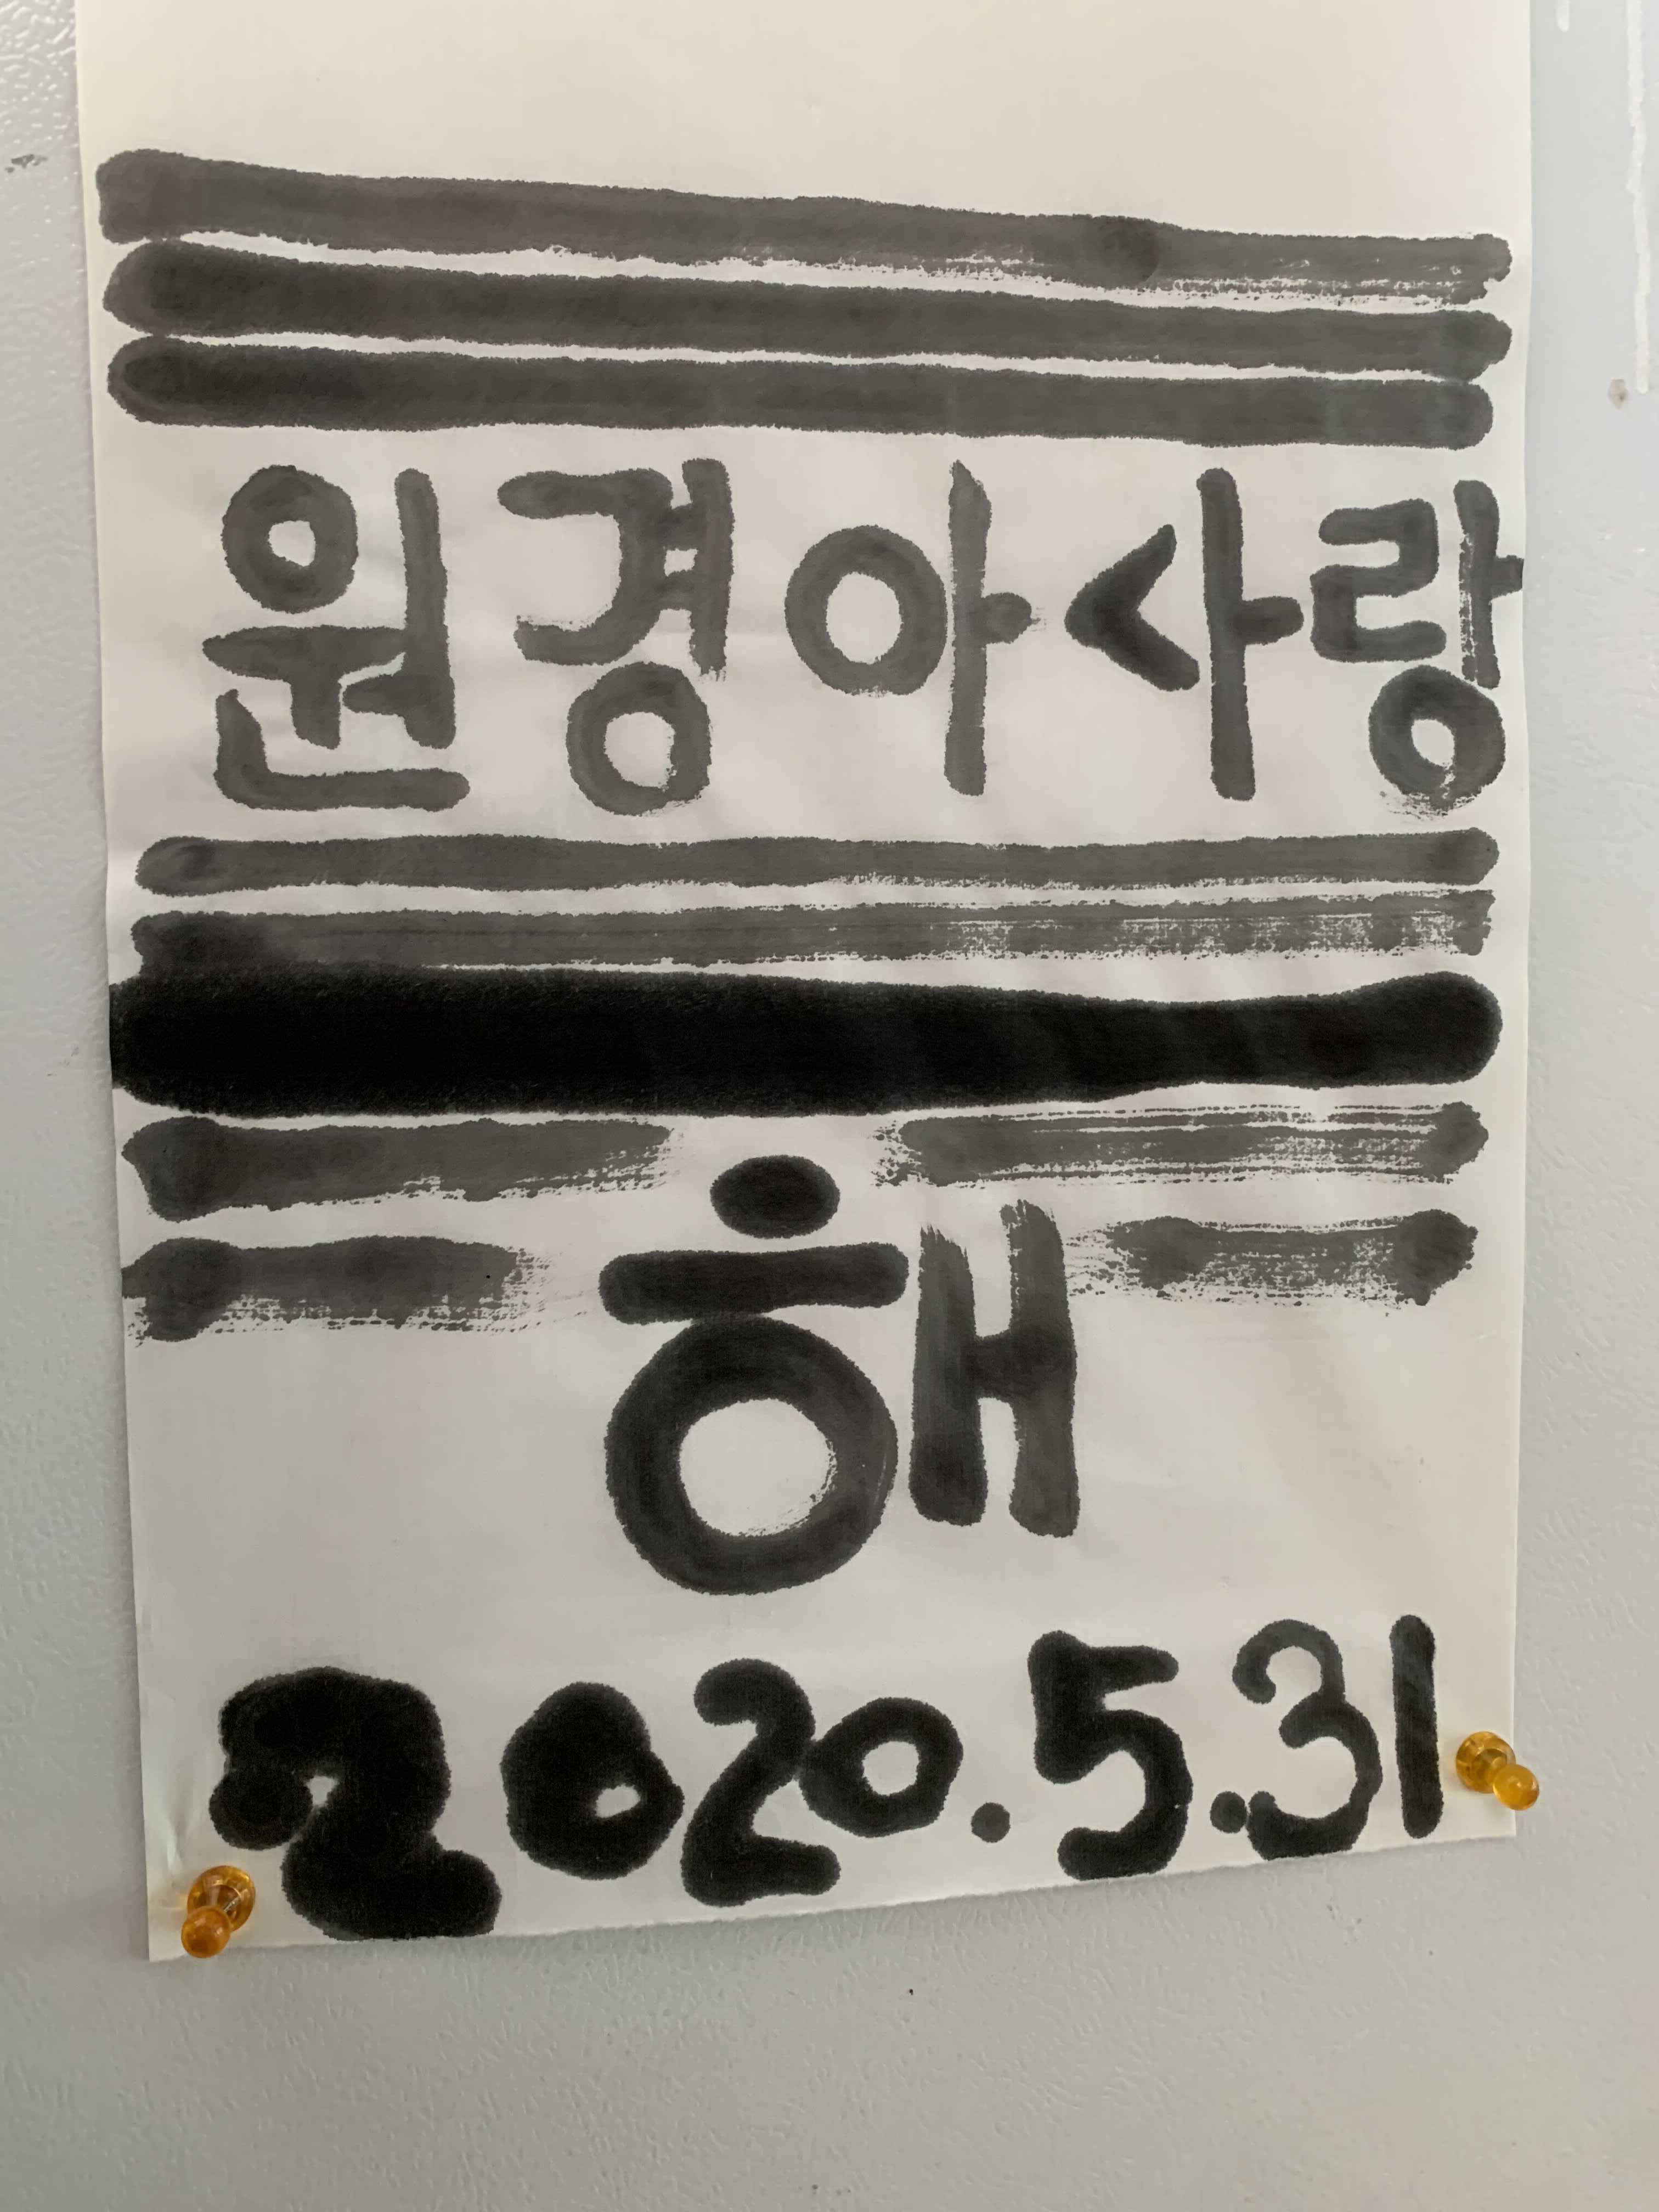 원경아사랑
해
2020.5.31